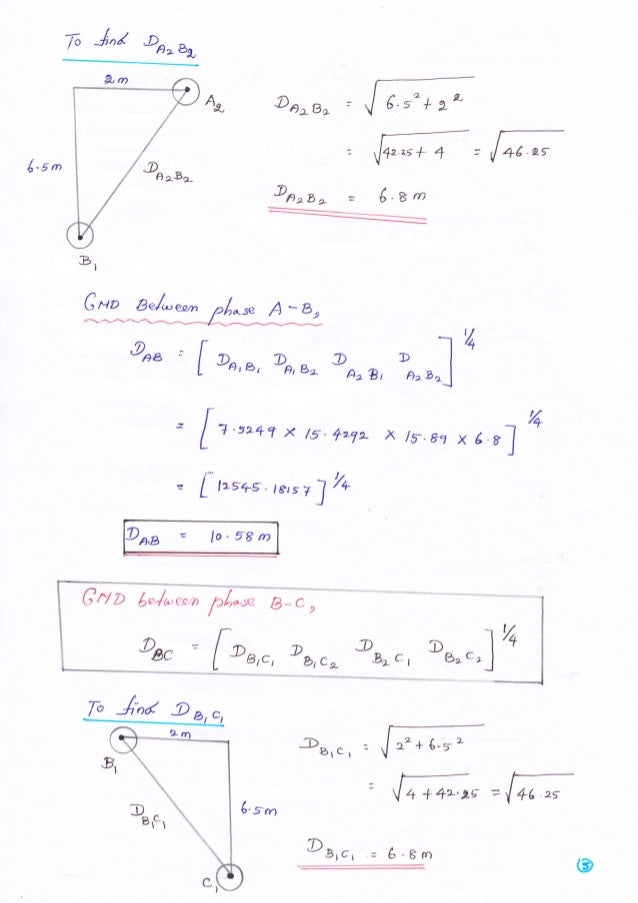 To find D A2 B2
2m
A2
6.5m
D A2B2
B1
D A2B2 = √6.5² + 2²
= √42.25 + 4 = √46.25
D A2B2 = 6.8 m
GMD Between phase A-B,
D AB = [ D A1B1 D A1B2 D A2B1 D A2B2 ] 1/4
= [ 7.5249 × 15.4292 × 15.89 × 6.8 ] 1/4
= [ 12545.18157 ] 1/4
D AB = 10.58 m
GMD between phase B-C,
D BC = [ D B1C1 D B1C2 D B2C1 D B2C2 ] 1/4
To find D B1C1
2m
B1
D B1C1
6.5m
C1
D B1C1 = √2² + 6.5²
= √4 + 42.25 = √46.25
D B1C1 = 6.8 m
3